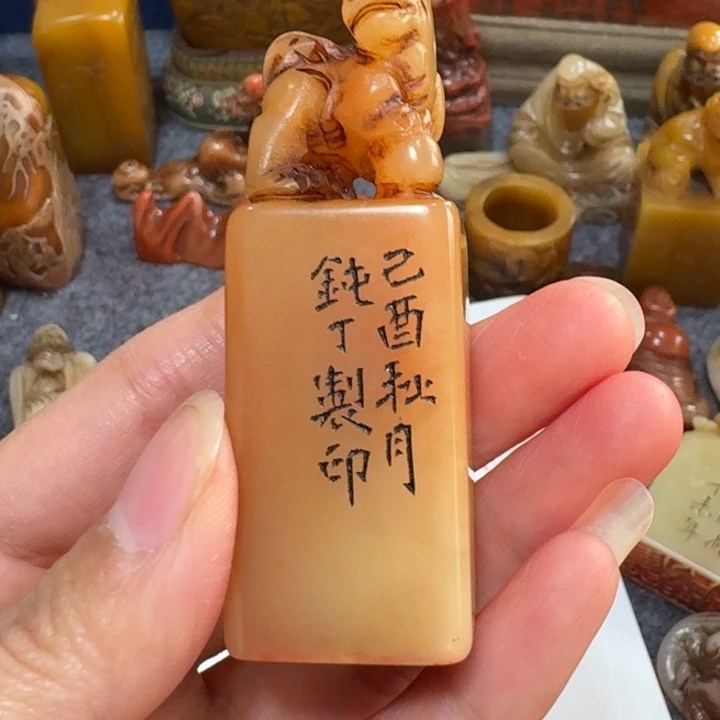 己酉秋月
鈍丁製印